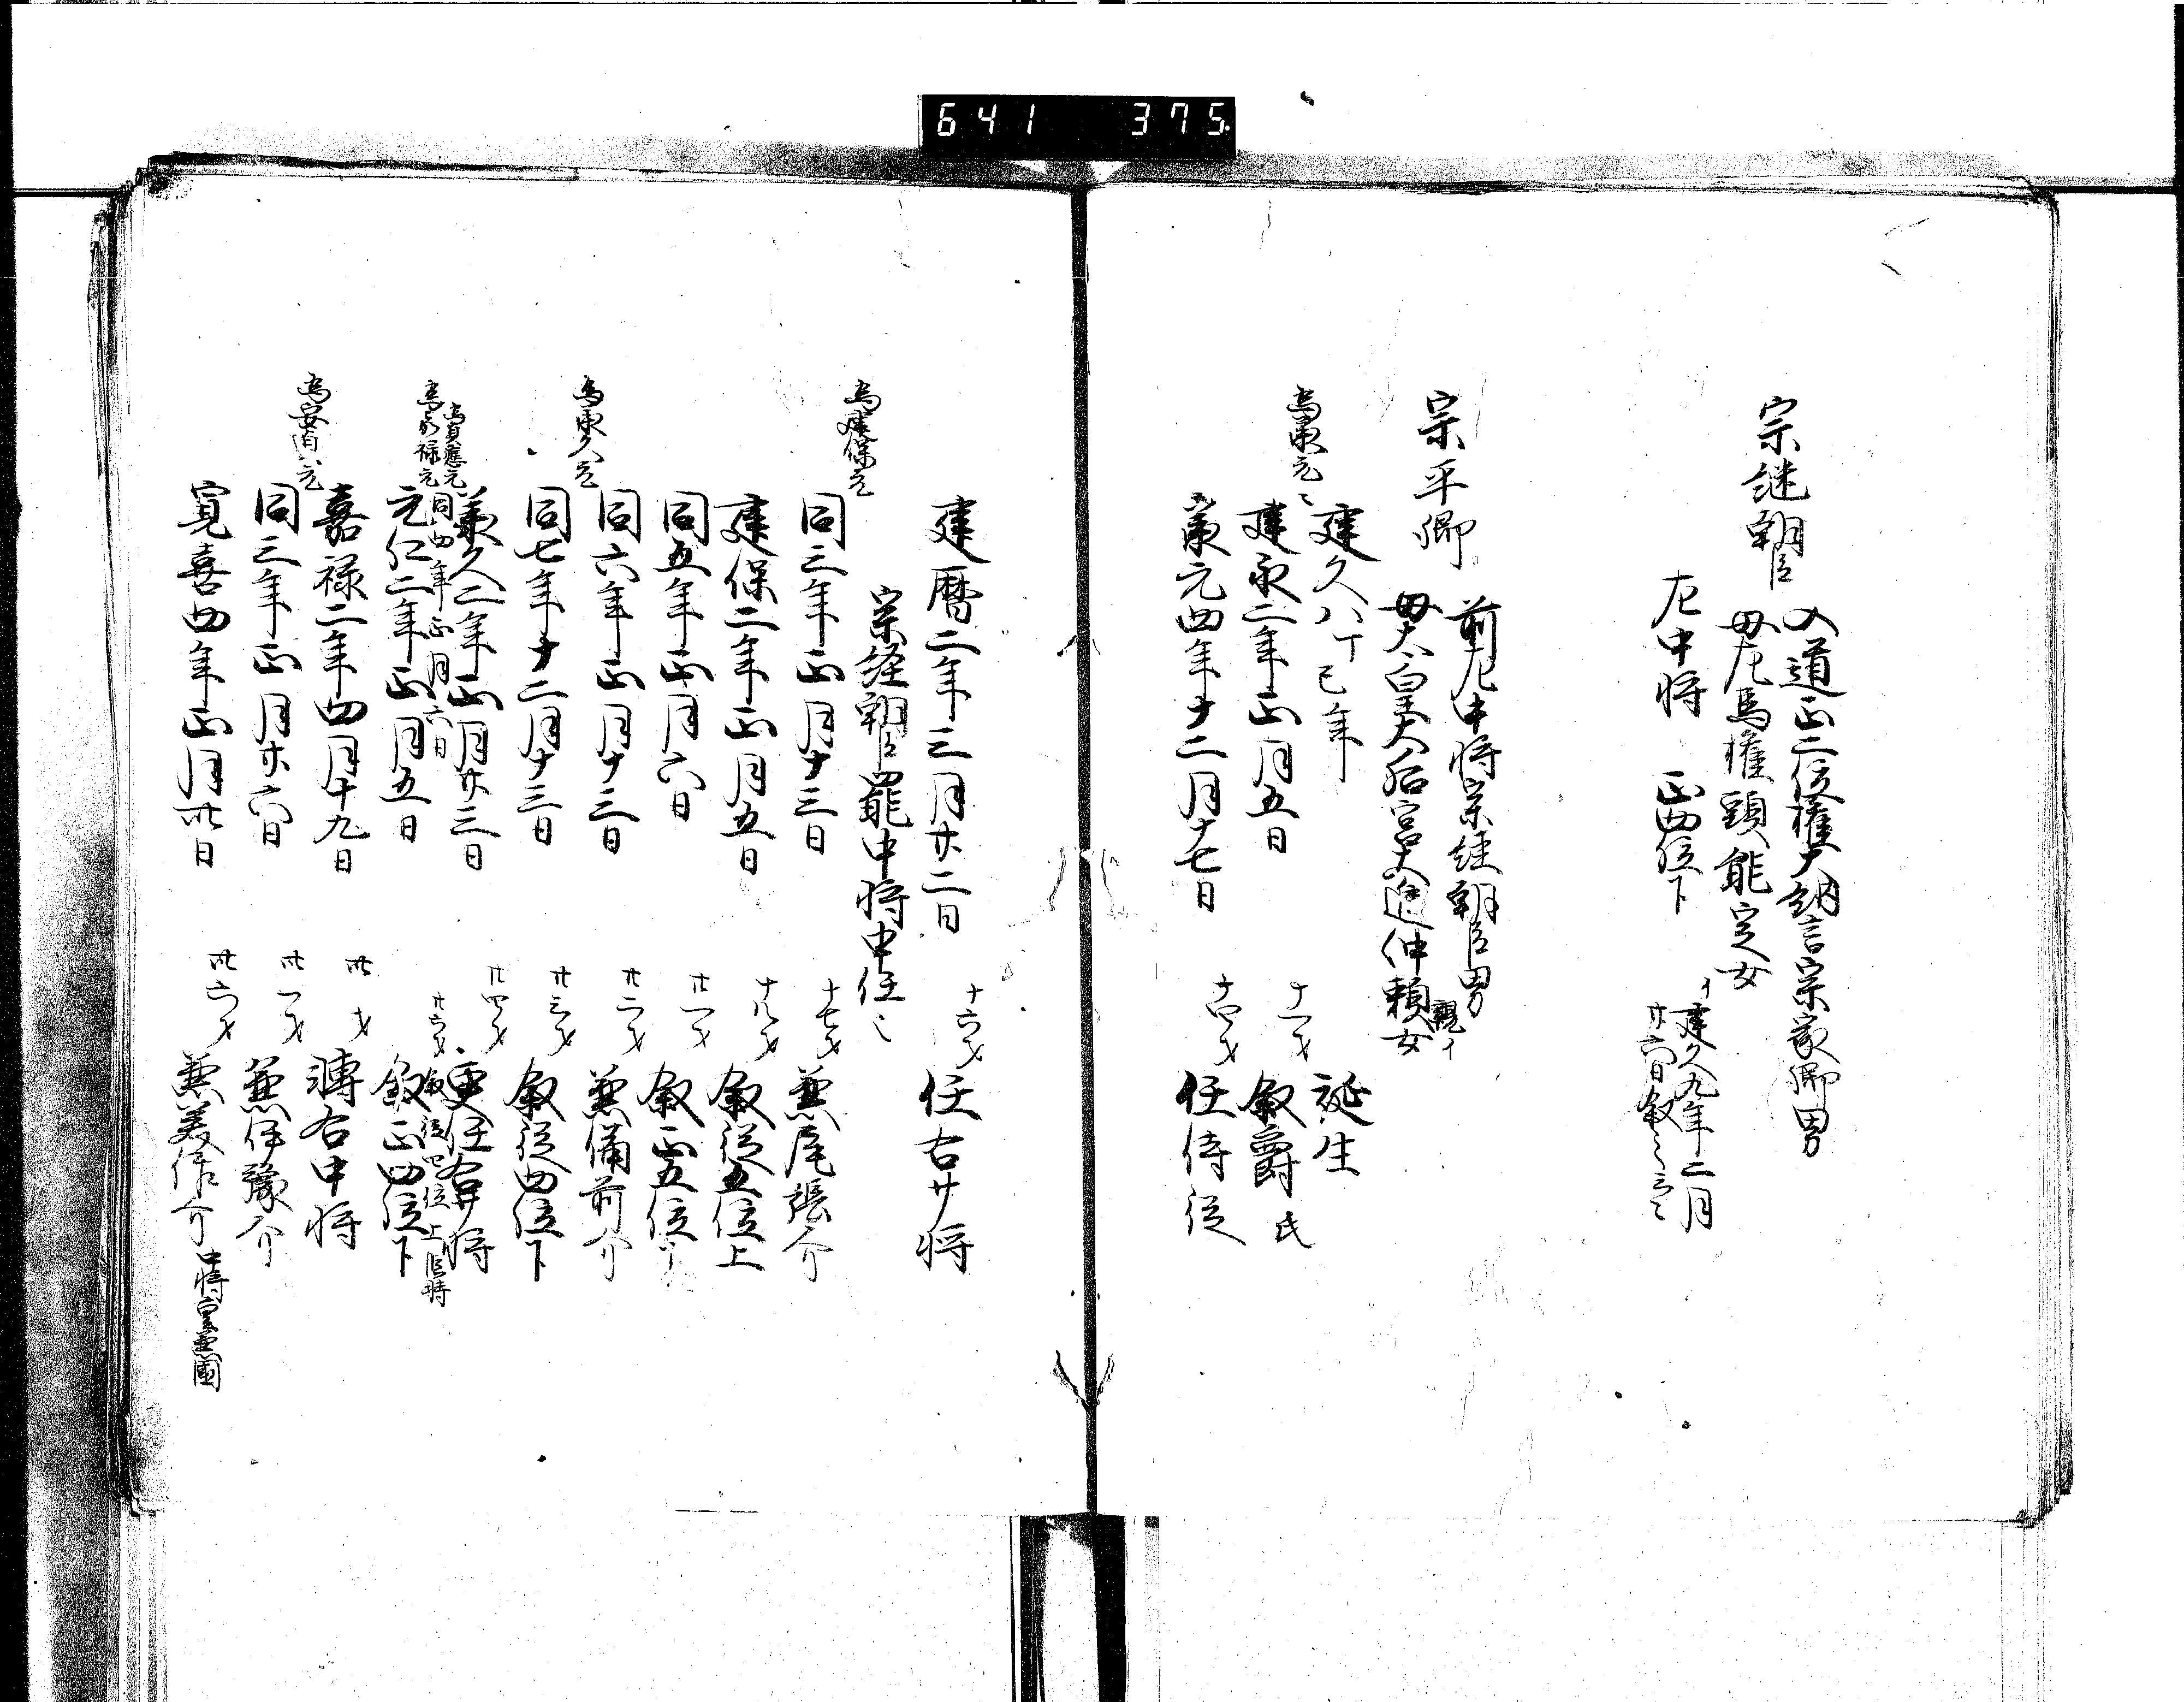 641 375
宗継朝臣
入道正二位権大納言宗家卿男
母左馬権頭能定女
左中将 正四位下
イ建久九年二月
廿六日叙之云々
宗平卿
前左中将宗経朝臣男
母太皇太后宮大進仲頼女
親イ
建久八丁巳年 誕生
為承元々
建永二年正月五日 十一才 叙爵 氏
承元四年十二月十七日 十四才 任侍従
建暦二年三月廿二日 十六才 任右少将
宗経朝臣罷中将申任之
為建保元
同三年正月十三日 十七才 兼尾張介
建保二年正月五日 十八才 叙従五位上
同五年正月六日 廿一才 叙正五位下
同六年正月十三日 廿二才 兼備前介
為承久元
同七年十二月十三日 廿三才 叙従四位下
承久二年正月廿三日 廿四才 更任右少将
為貞應元
同四年正月六日 廿六才 叙従四位上
為嘉禄元
元仁二年正月五日 叙正四位下
嘉禄二年四月十九日 卅才 轉右中将
為安貞元
同三年正月廿六日 卅一才 兼伊豫介
寛喜四年正月卅日 卅六才 兼美作介 中将兼国